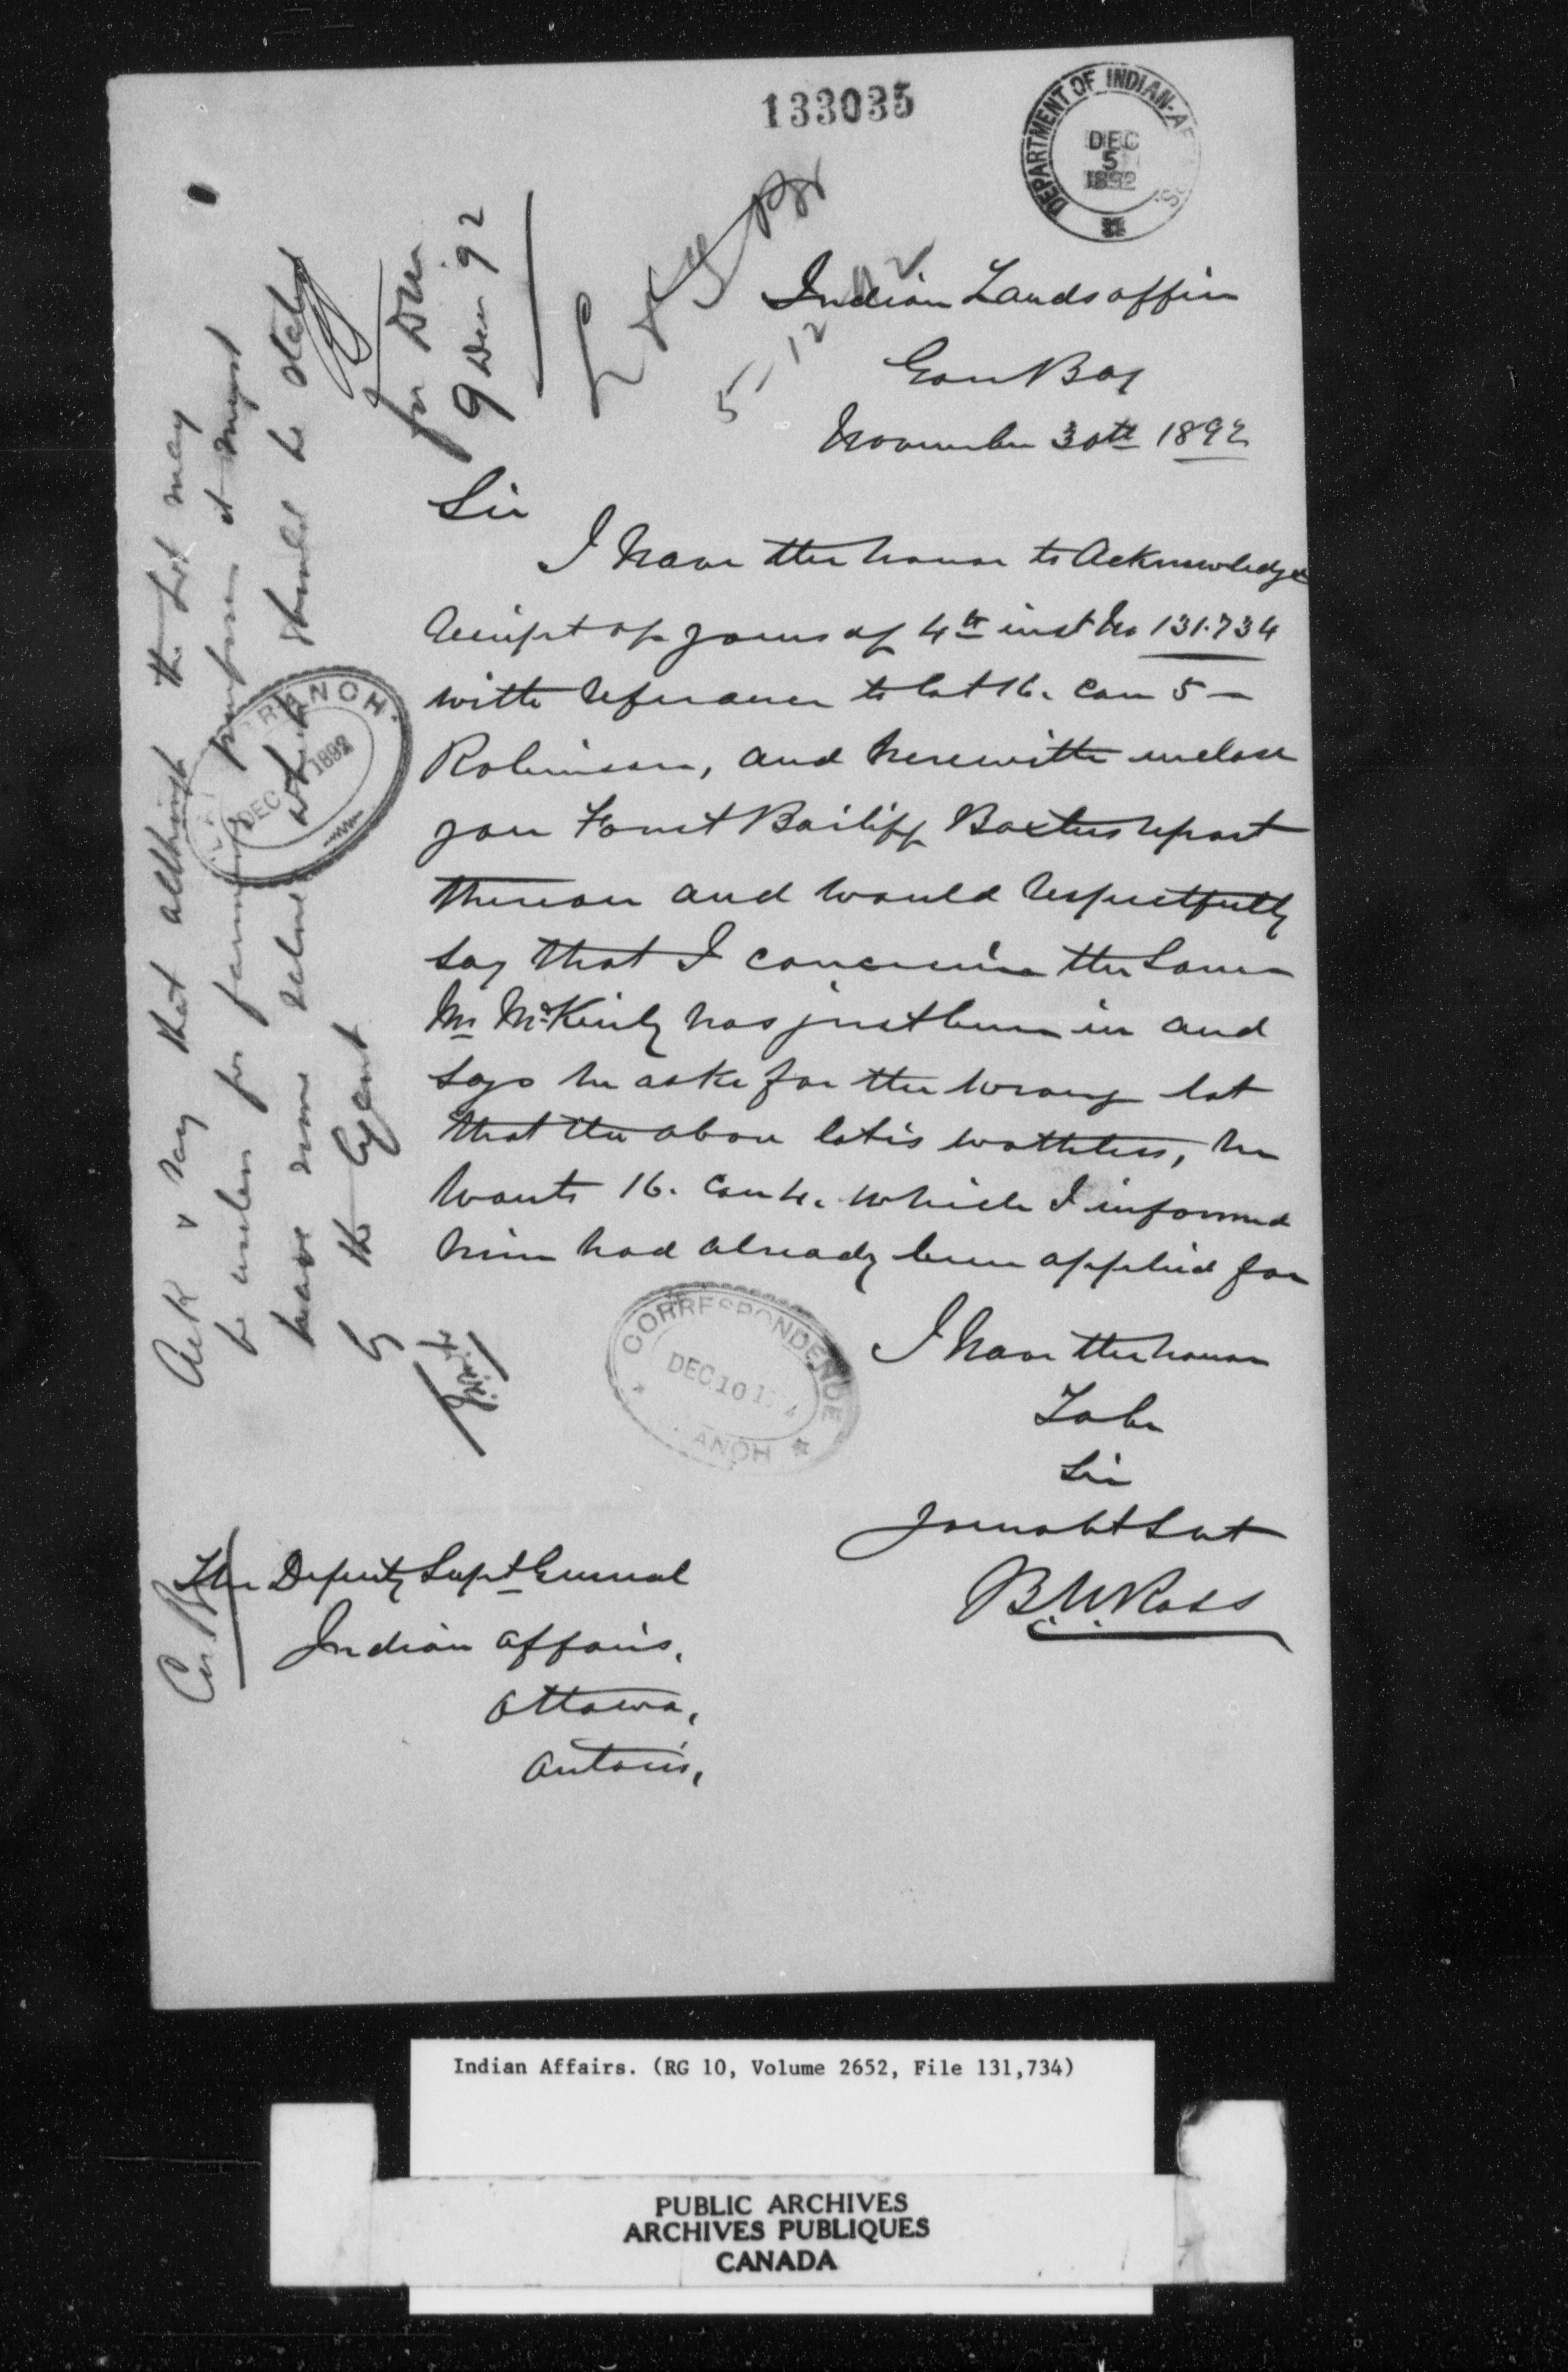 133035
DEPARTMENT OF INDIAN
DEC
5
1892
Indian Lands office
Gore Bay
November 30th 1892
Sir
I have the honor to Acknowledge
receipt of yours of 4th inst No 131.734
with reference to lot 16. Con 5 —
Robinson, and herewith enclose
you Forest Bailiff Baxters report
thereon and would respectfully
say that I concur in the same
Mr McKinly has just been in and
says he aske for the wrong lot
that the above lot is worthless, he
wants 16. Con 4. which I informed
him had already been applied for
I have the honor
To be
Sir
Your obt Svt
B.W. Ross
The Deputy Supt General
Indian Affairs.
Ottawa,
Ontario,
Ack & say that although the lot may
be useless for farming purposes it might
have some value which should be stated
by the Agent
9 Dec 92
5-12
BRANCH
DEC 1892
CORRESPONDENCE
DEC 10
Indian Affairs. (RG 10, Volume 2652, File 131,734)
PUBLIC ARCHIVES
ARCHIVES PUBLIQUES
CANADA